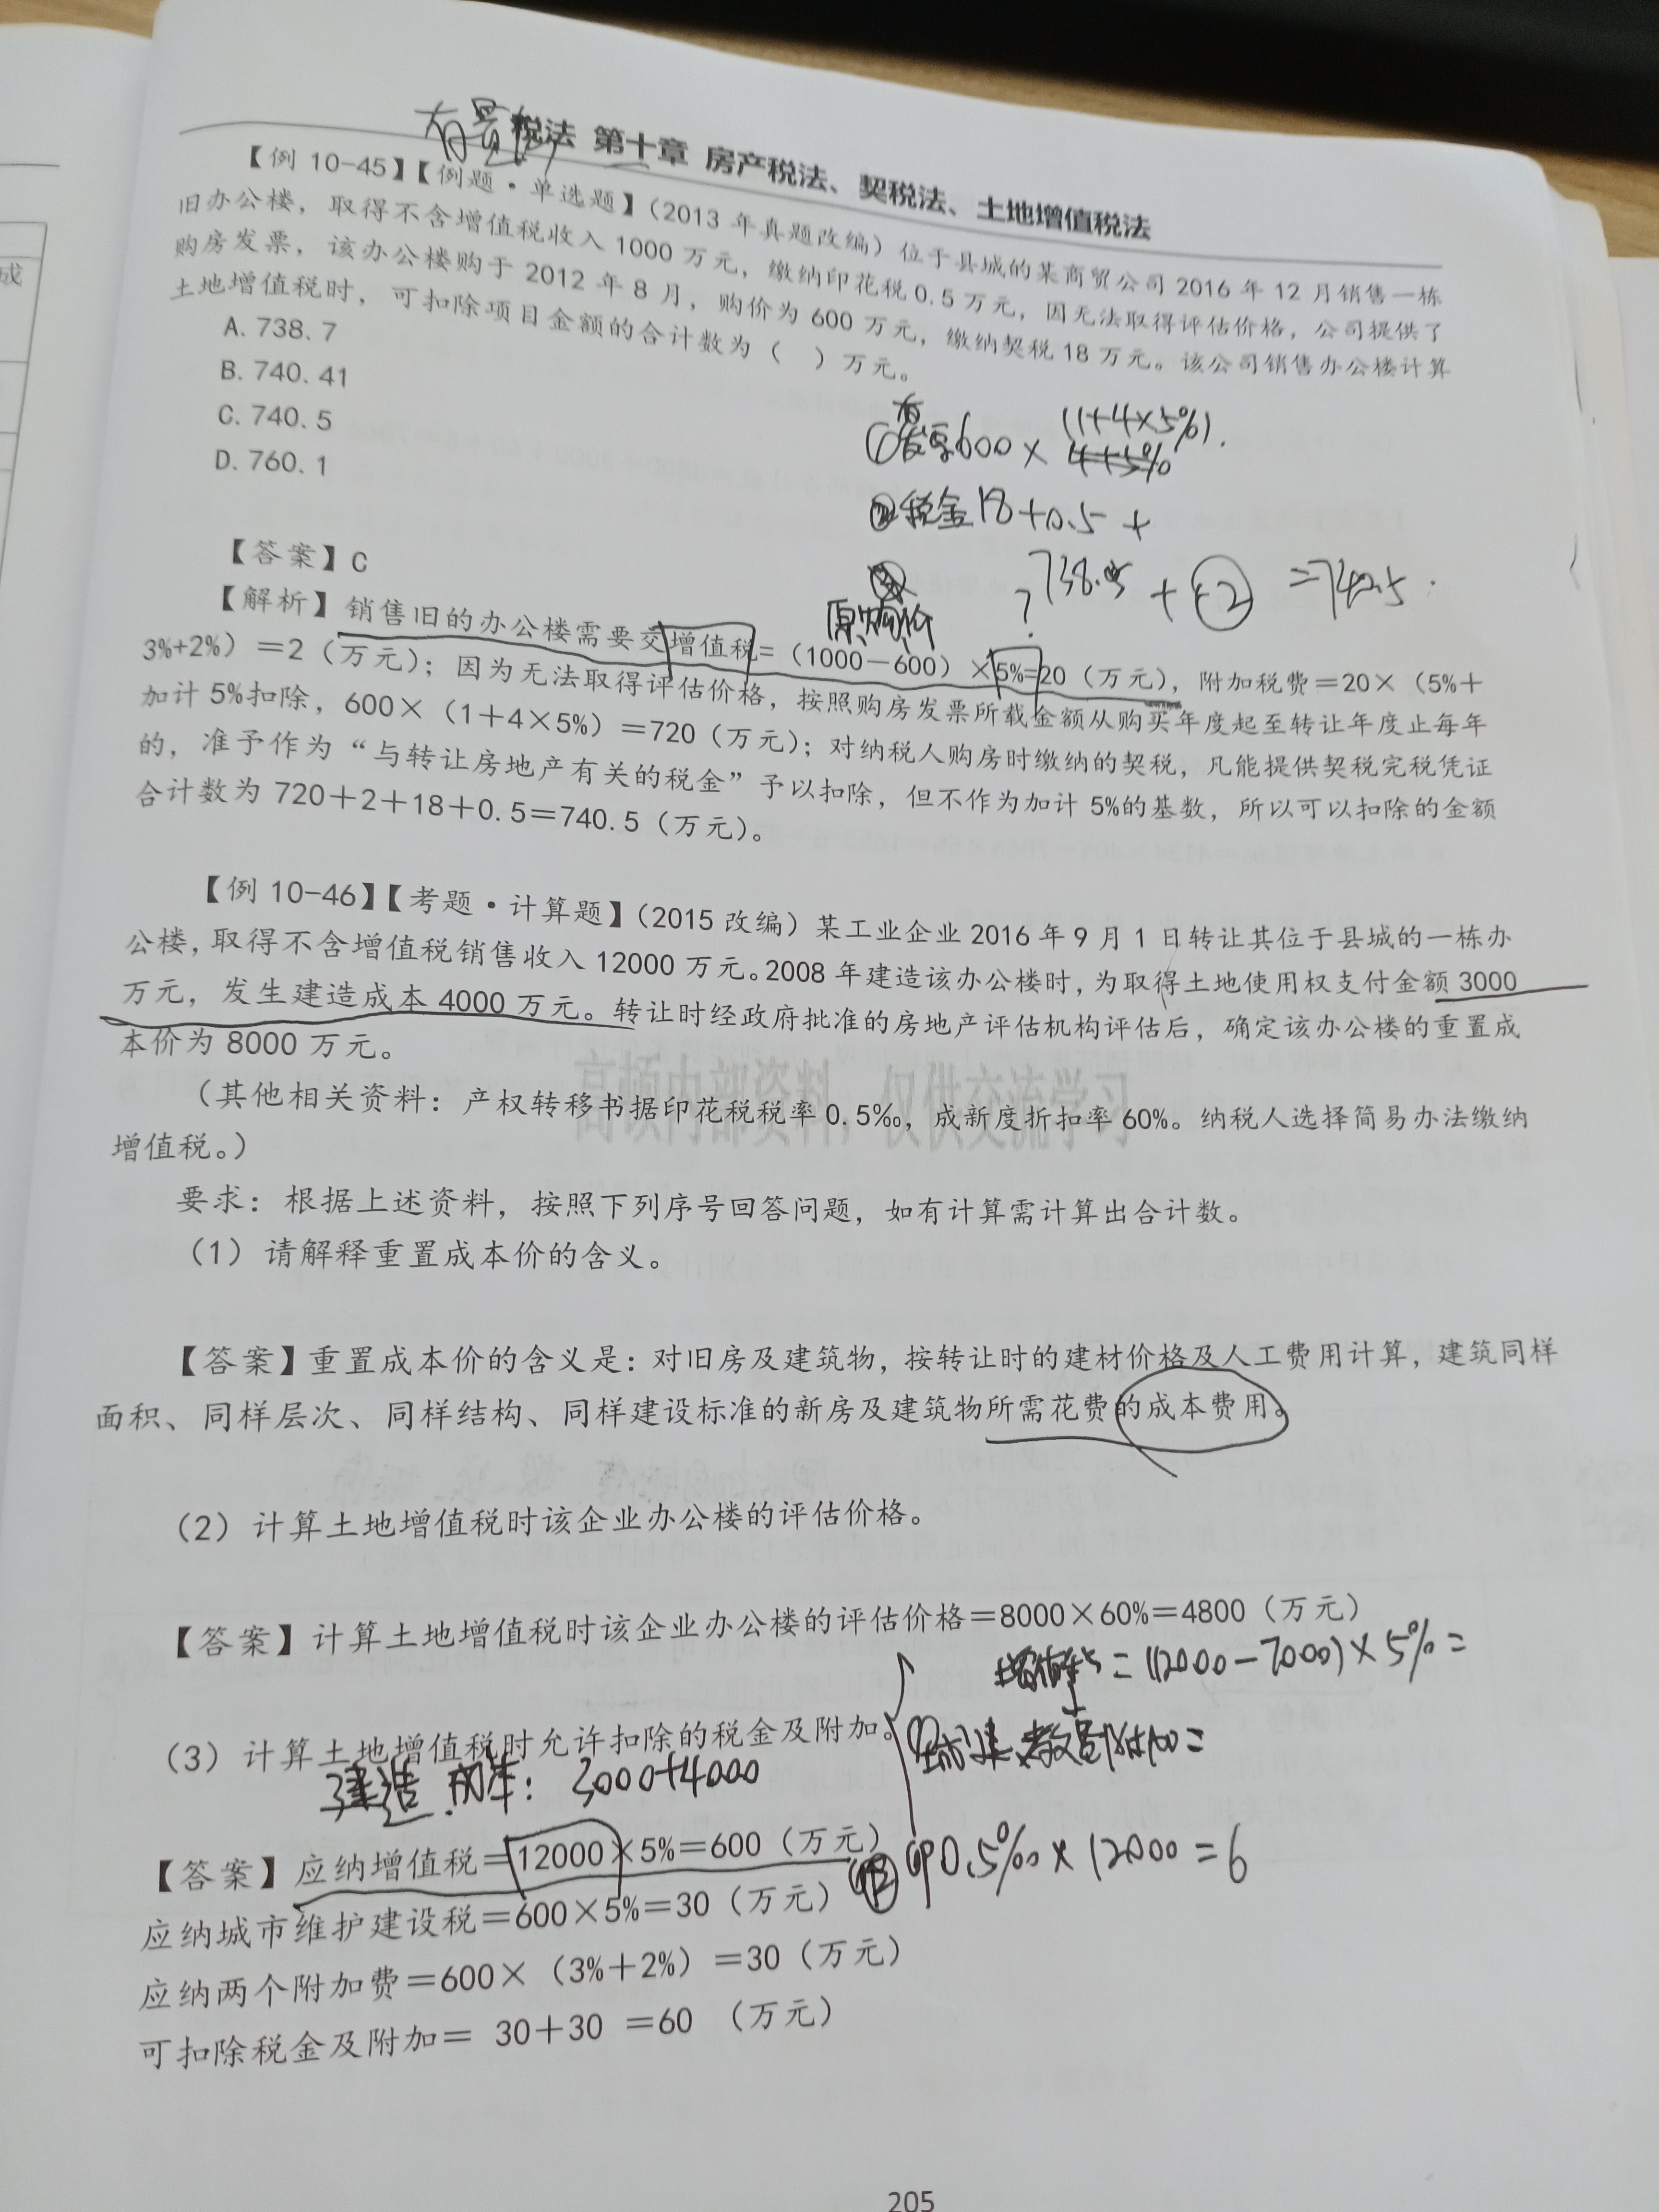 税法 第十章 房产税法、契税法、土地增值税法
【例 10-45】【例题·单选题】（2013 年真题改编）位于县城的某商贸公司 2016 年 12 月销售一栋
旧办公楼，取得不含增值税收入 1000 万元，缴纳印花税 0.5 万元，因无法取得评估价格，公司提供了
购房发票，该办公楼购于 2012 年 8 月，购价为 600 万元，缴纳契税 18 万元。该公司销售办公楼计算
土地增值税时，可扣除项目金额的合计数为（ ）万元。
A. 738. 7
B. 740. 41
C. 740. 5
D. 760. 1
①有发票600 × (1+4×5%).
4+5%
②税金 18+0.5 +
738.5 + ② =740.5
【答案】C
原购价
【解析】销售旧的办公楼需要交增值税=（1000－600）×5%=20（万元），附加税费＝20×（5%＋
3%+2%）＝2（万元）；因为无法取得评估价格，按照购房发票所载金额从购买年度起至转让年度止每年
加计 5%扣除，600×（1＋4×5%）＝720（万元）；对纳税人购房时缴纳的契税，凡能提供契税完税凭证
的，准予作为“与转让房地产有关的税金”予以扣除，但不作为加计 5%的基数，所以可以扣除的金额
合计数为 720＋2＋18＋0.5＝740.5（万元）。
【例 10-46】【考题·计算题】（2015 改编）某工业企业 2016 年 9 月 1 日转让其位于县城的一栋办
公楼，取得不含增值税销售收入 12000 万元。2008 年建造该办公楼时，为取得土地使用权支付金额 3000
万元，发生建造成本 4000 万元。转让时经政府批准的房地产评估机构评估后，确定该办公楼的重置成
本价为 8000 万元。
高顿内部资料，仅供交流学习
（其他相关资料：产权转移书据印花税税率 0.5‰，成新度折扣率 60%。纳税人选择简易办法缴纳
增值税。）
要求：根据上述资料，按照下列序号回答问题，如有计算需计算出合计数。
（1）请解释重置成本价的含义。
【答案】重置成本价的含义是：对旧房及建筑物，按转让时的建材价格及人工费用计算，建筑同样
面积、同样层次、同样结构、同样建设标准的新房及建筑物所需花费的成本费用。
（2）计算土地增值税时该企业办公楼的评估价格。
【答案】计算土地增值税时该企业办公楼的评估价格＝8000×60%＝4800（万元）
增值税 = (12000－7000)×5% =
（3）计算土地增值税时允许扣除的税金及附加。
建造成本：3000+4000
【答案】应纳增值税＝12000×5%＝600（万元）
② 印0.5‰ × 12000 = 6
应纳城市维护建设税＝600×5%＝30（万元）
应纳两个附加费＝600×（3%＋2%）＝30（万元）
可扣除税金及附加＝ 30＋30 ＝60 （万元）
205